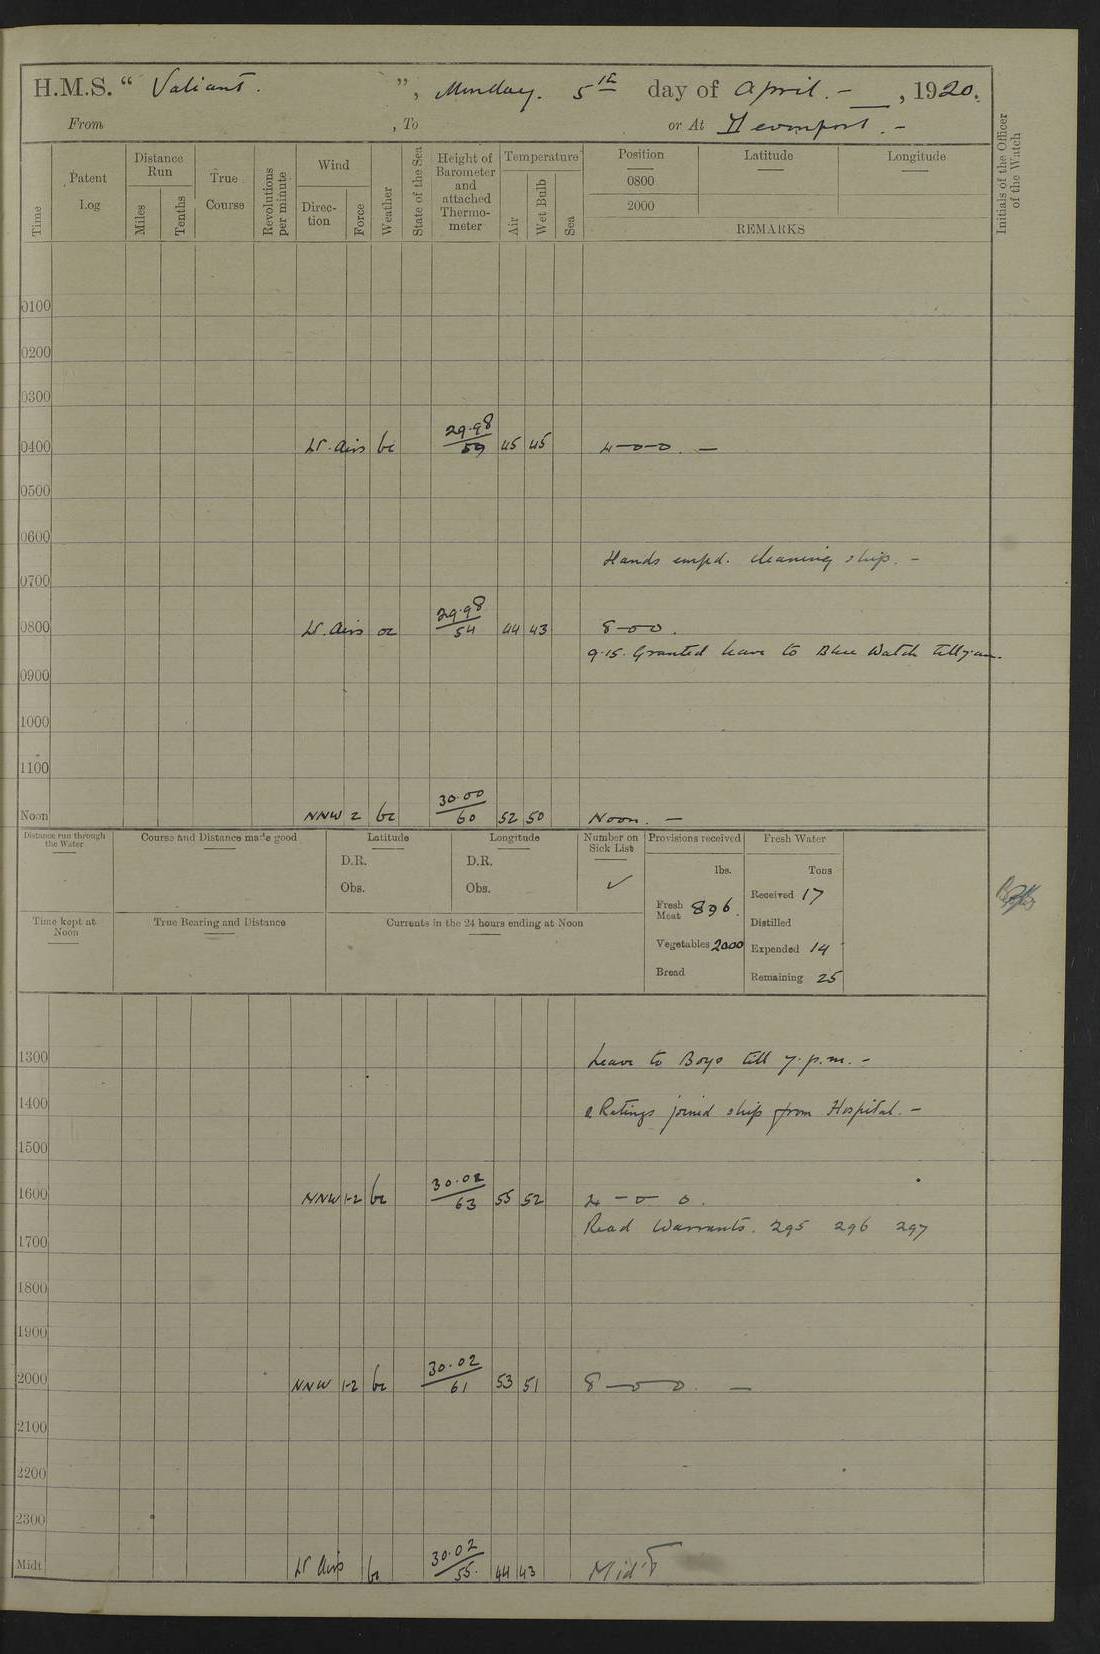 H.M.S. " Valiant. ", Monday. 5th day of April. - , 1920.
From , To or At Devonport. -
Time
Patent Log
Distance Run
Miles
Tenths
True Course
Revolutions per minute
Wind
Direc-tion
Force
Weather
State of the Sea
Height of Barometer and attached Thermo-meter
Temperature
Air
Wet Bulb
Sea
Position Latitude Longitude
0800
2000
REMARKS
Initials of the Officer of the Watch
0100
0200
0300
0400 Lt. Airs bc 29.98/59 45 45 4-0-0. -
0500
0600
Hands empd. cleaning ship. -
0700
0800 Lt. Airs oc 29.98/54 44 43 8-00.
9.15. Granted leave to Blue Watch till 7 am.
0900
1000
1100
Noon NNW 2 bc 30.00/60 52 50 Noon. -
Distance run through the Water
Course and Distance made good
Latitude
D.R.
Obs.
Longitude
D.R.
Obs.
Number on Sick List
✓
Provisions received
lbs.
Fresh Meat 896.
Vegetables 2000
Bread
Fresh Water
Tons
Received 17
Distilled
Expended 14
Remaining 25
Time kept at Noon
True Bearing and Distance
Currents in the 24 hours ending at Noon
1300 Leave to Boys till 7. p.m. -
1400 2 Ratings joined ship from Hospital. -
1500
1600 NNW 1-2 bc 30.02/63 55 52 4 - 0 0.
Read Warrants. 295 296 297
1700
1800
1900
2000 NNW 1-2 bc 30.02/61 53 51 8-00. -
2100
2200
2300
Midt. Lt Airs bc 30.02/55. 44 43 Mid't